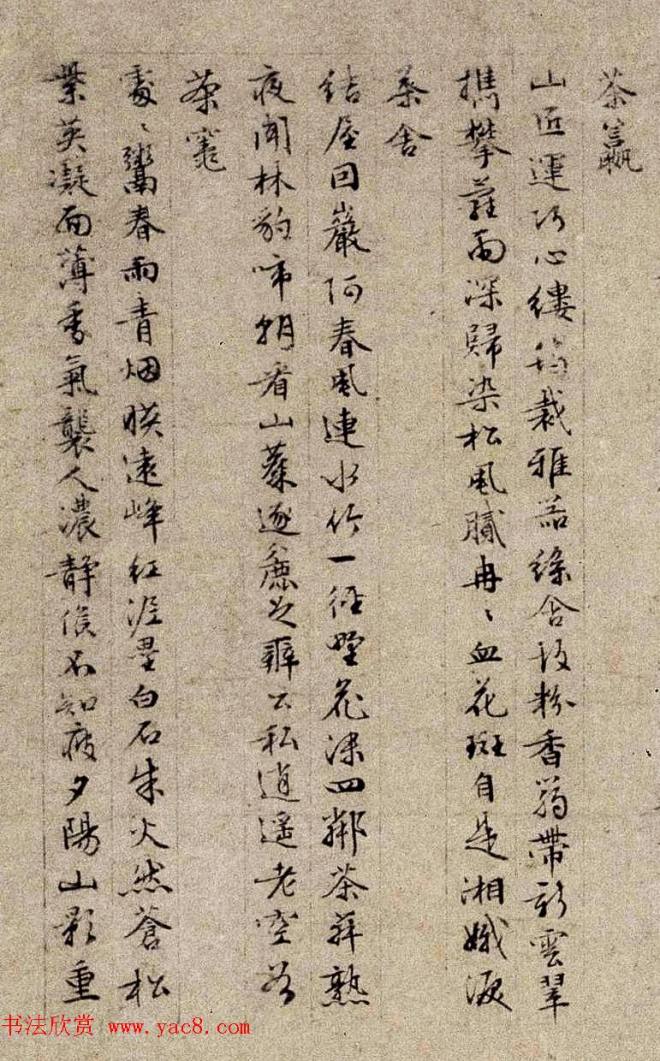 茶籝
山匠運巧心縷筠裁雅器綠含故粉香篛帶新雲翠
攜攀蘿雨深歸染松風膩冉〻血花斑自是湘娥淚
茶舍
結屋因巖阿春風連水竹一徑野花深四鄰茶荈熟
夜聞林豹啼朝看山麋逐麁足辦公私逍遙老空谷
茶竈
處〻鬻春雨青烟映遠峰紅泥壘白石朱火然蒼松
紫英凝面薄香氣襲人濃靜候不知疲夕陽山影重
书法欣赏 www.yac8.com